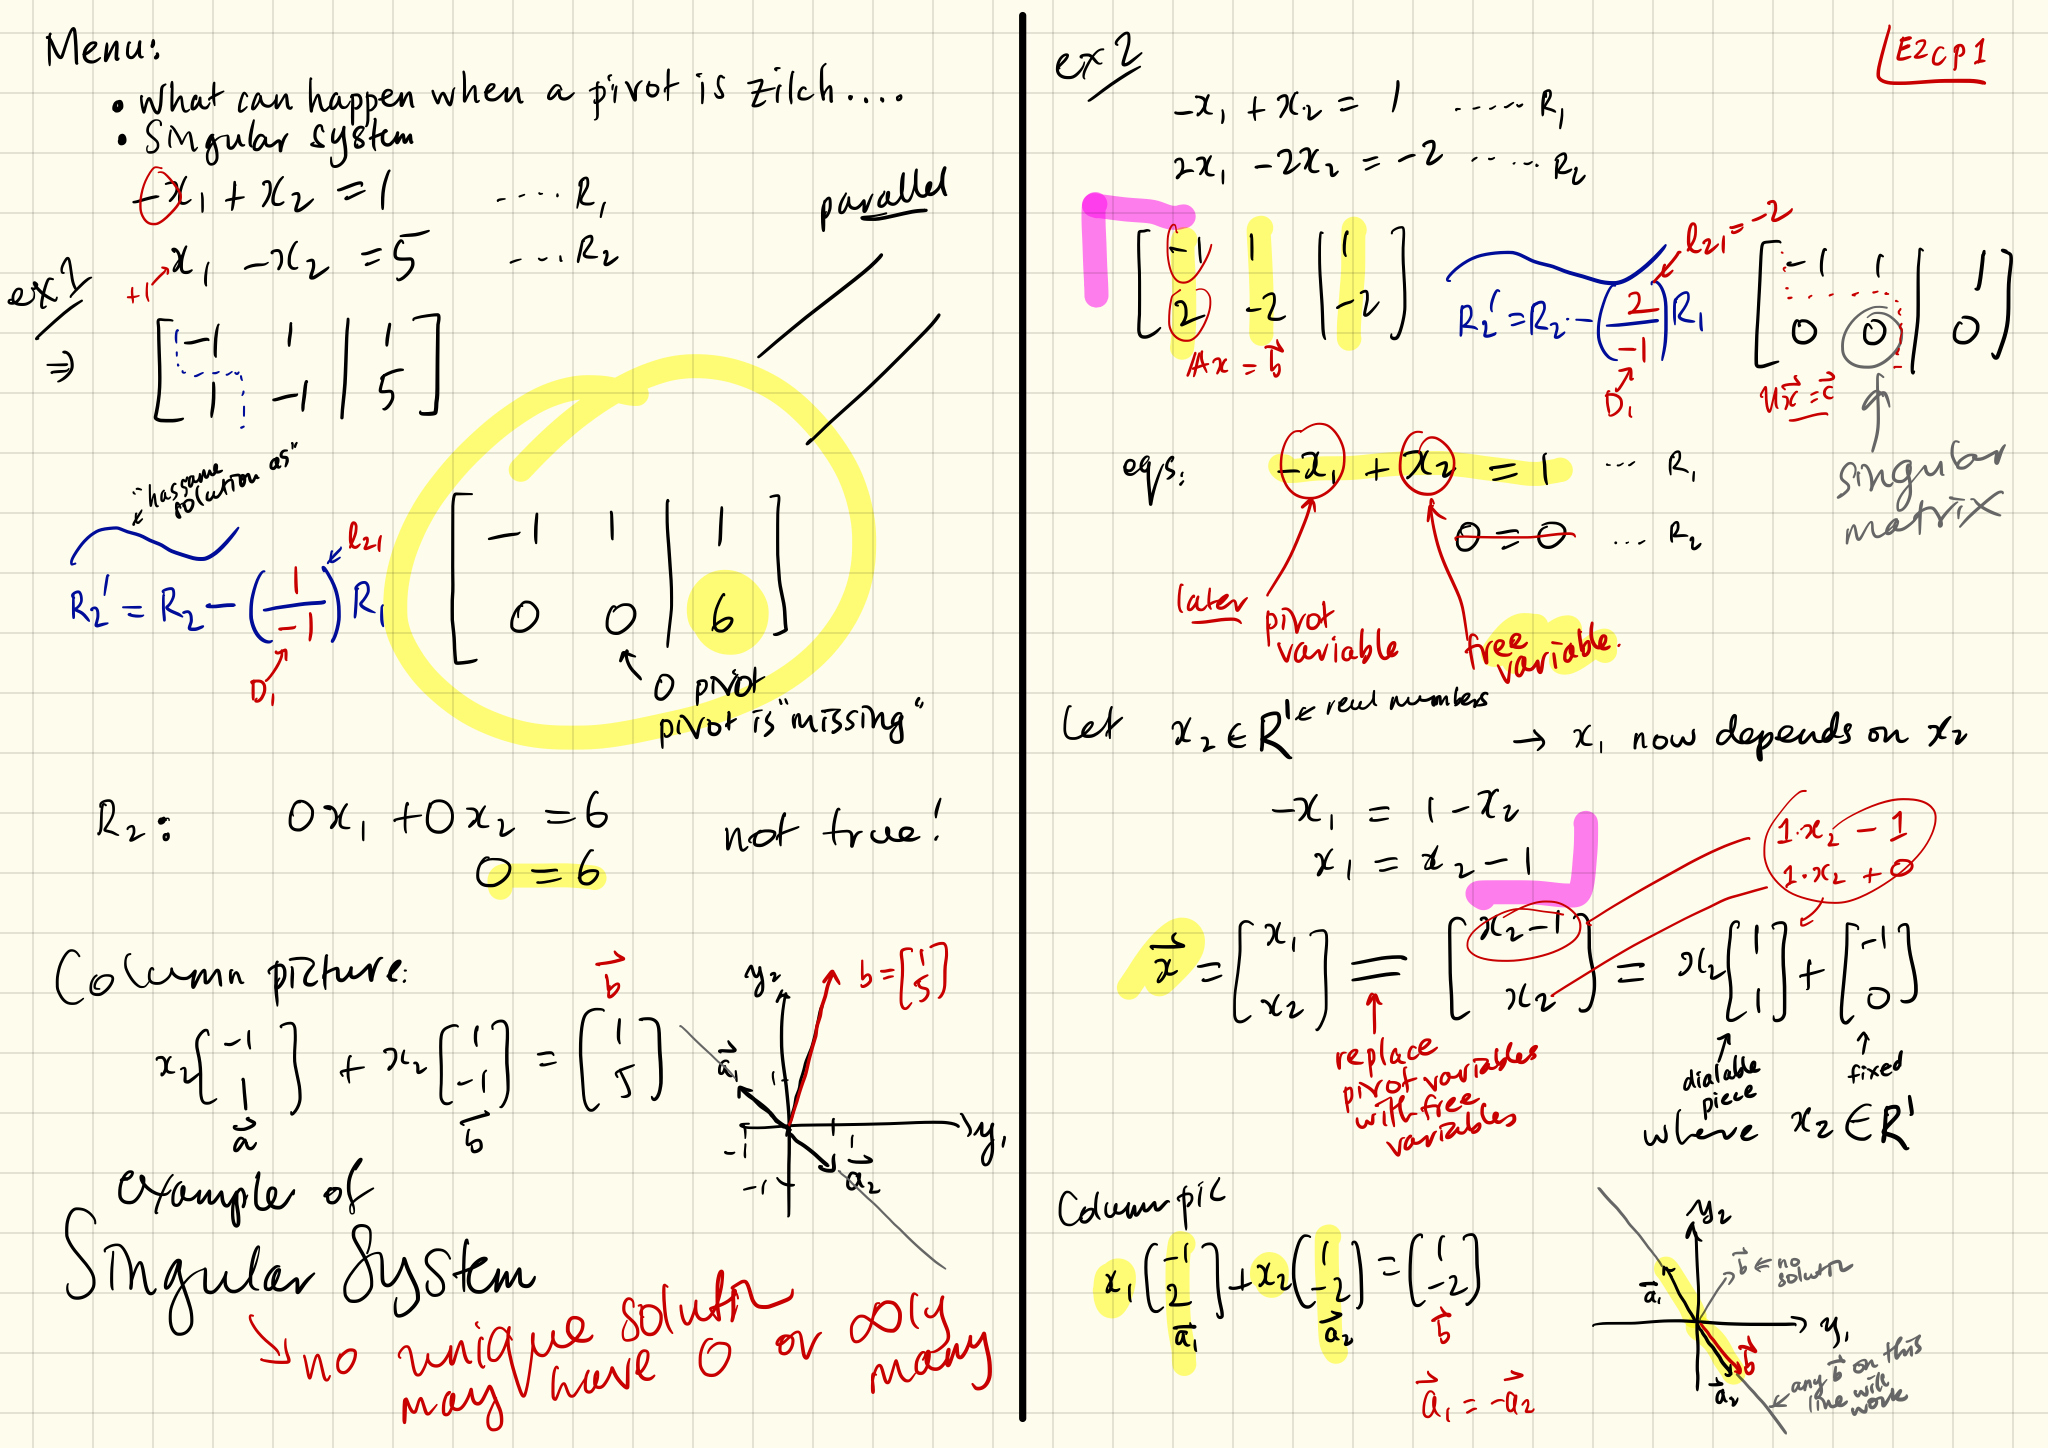 Menu:
• What can happen when a pivot is zilch....
• Singular system
ex1
-x₁ + x₂ = 1 ..... R₁
+1
x₁ - x₂ = 5 ... R₂
⇒ [ -1 1 | 1 ]
[ 1 -1 | 5 ]
parallel
"has same
solution as"
R₂' = R₂ - (1/-1) R₁
l₂₁
D₁
[ -1 1 | 1 ]
[ 0 0 | 6 ]
0 pivot
pivot is "missing"
R₂: 0x₁ + 0x₂ = 6
0 = 6
not true!
Column picture:
x₂ [-1 1] + x₂ [1 -1] = [1 5]
a⃗ b⃗ b⃗
y₂
b = [1 5]
a⃗₁
1
-1 1 y₁
-1
a⃗₂
example of
Singular System
↘ no unique solutn
may have 0 or ∞ly
many
E2cp1
ex2
-x₁ + x₂ = 1 ...... R₁
2x₁ - 2x₂ = -2 ...... R₂
[ -1 1 | 1 ]
[ 2 -2 | -2 ]
Ax = b⃗
R₂' = R₂ - (2/-1) R₁
l₂₁ = -2
D₁
[ -1 1 | 1 ]
[ 0 0 | 0 ]
Ux⃗ = c⃗
singular
matrix
eqs: -x₁ + x₂ = 1 ... R₁
0 = 0 ... R₂
later pivot
variable
free
variable.
Let x₂ ∈ R¹ ← real numbers
→ x₁ now depends on x₂
-x₁ = 1 - x₂
x₁ = x₂ - 1
1·x₂ - 1
1·x₂ + 0
x⃗ = [x₁ x₂] = [x₂-1 x₂] = x₂ [1 1] + [-1 0]
replace
pivot variables
with free
variables
dialable
piece
fixed
where x₂ ∈ R¹
Column pic
x₁ [-1 2] + x₂ [1 -2] = [1 -2]
a⃗₁ a⃗₂ b⃗
a⃗₁ = -a⃗₂
y₂
b⃗ ← no
solution
a⃗₁
y₁
b⃗
a⃗₂
any b⃗ on this
line will
work